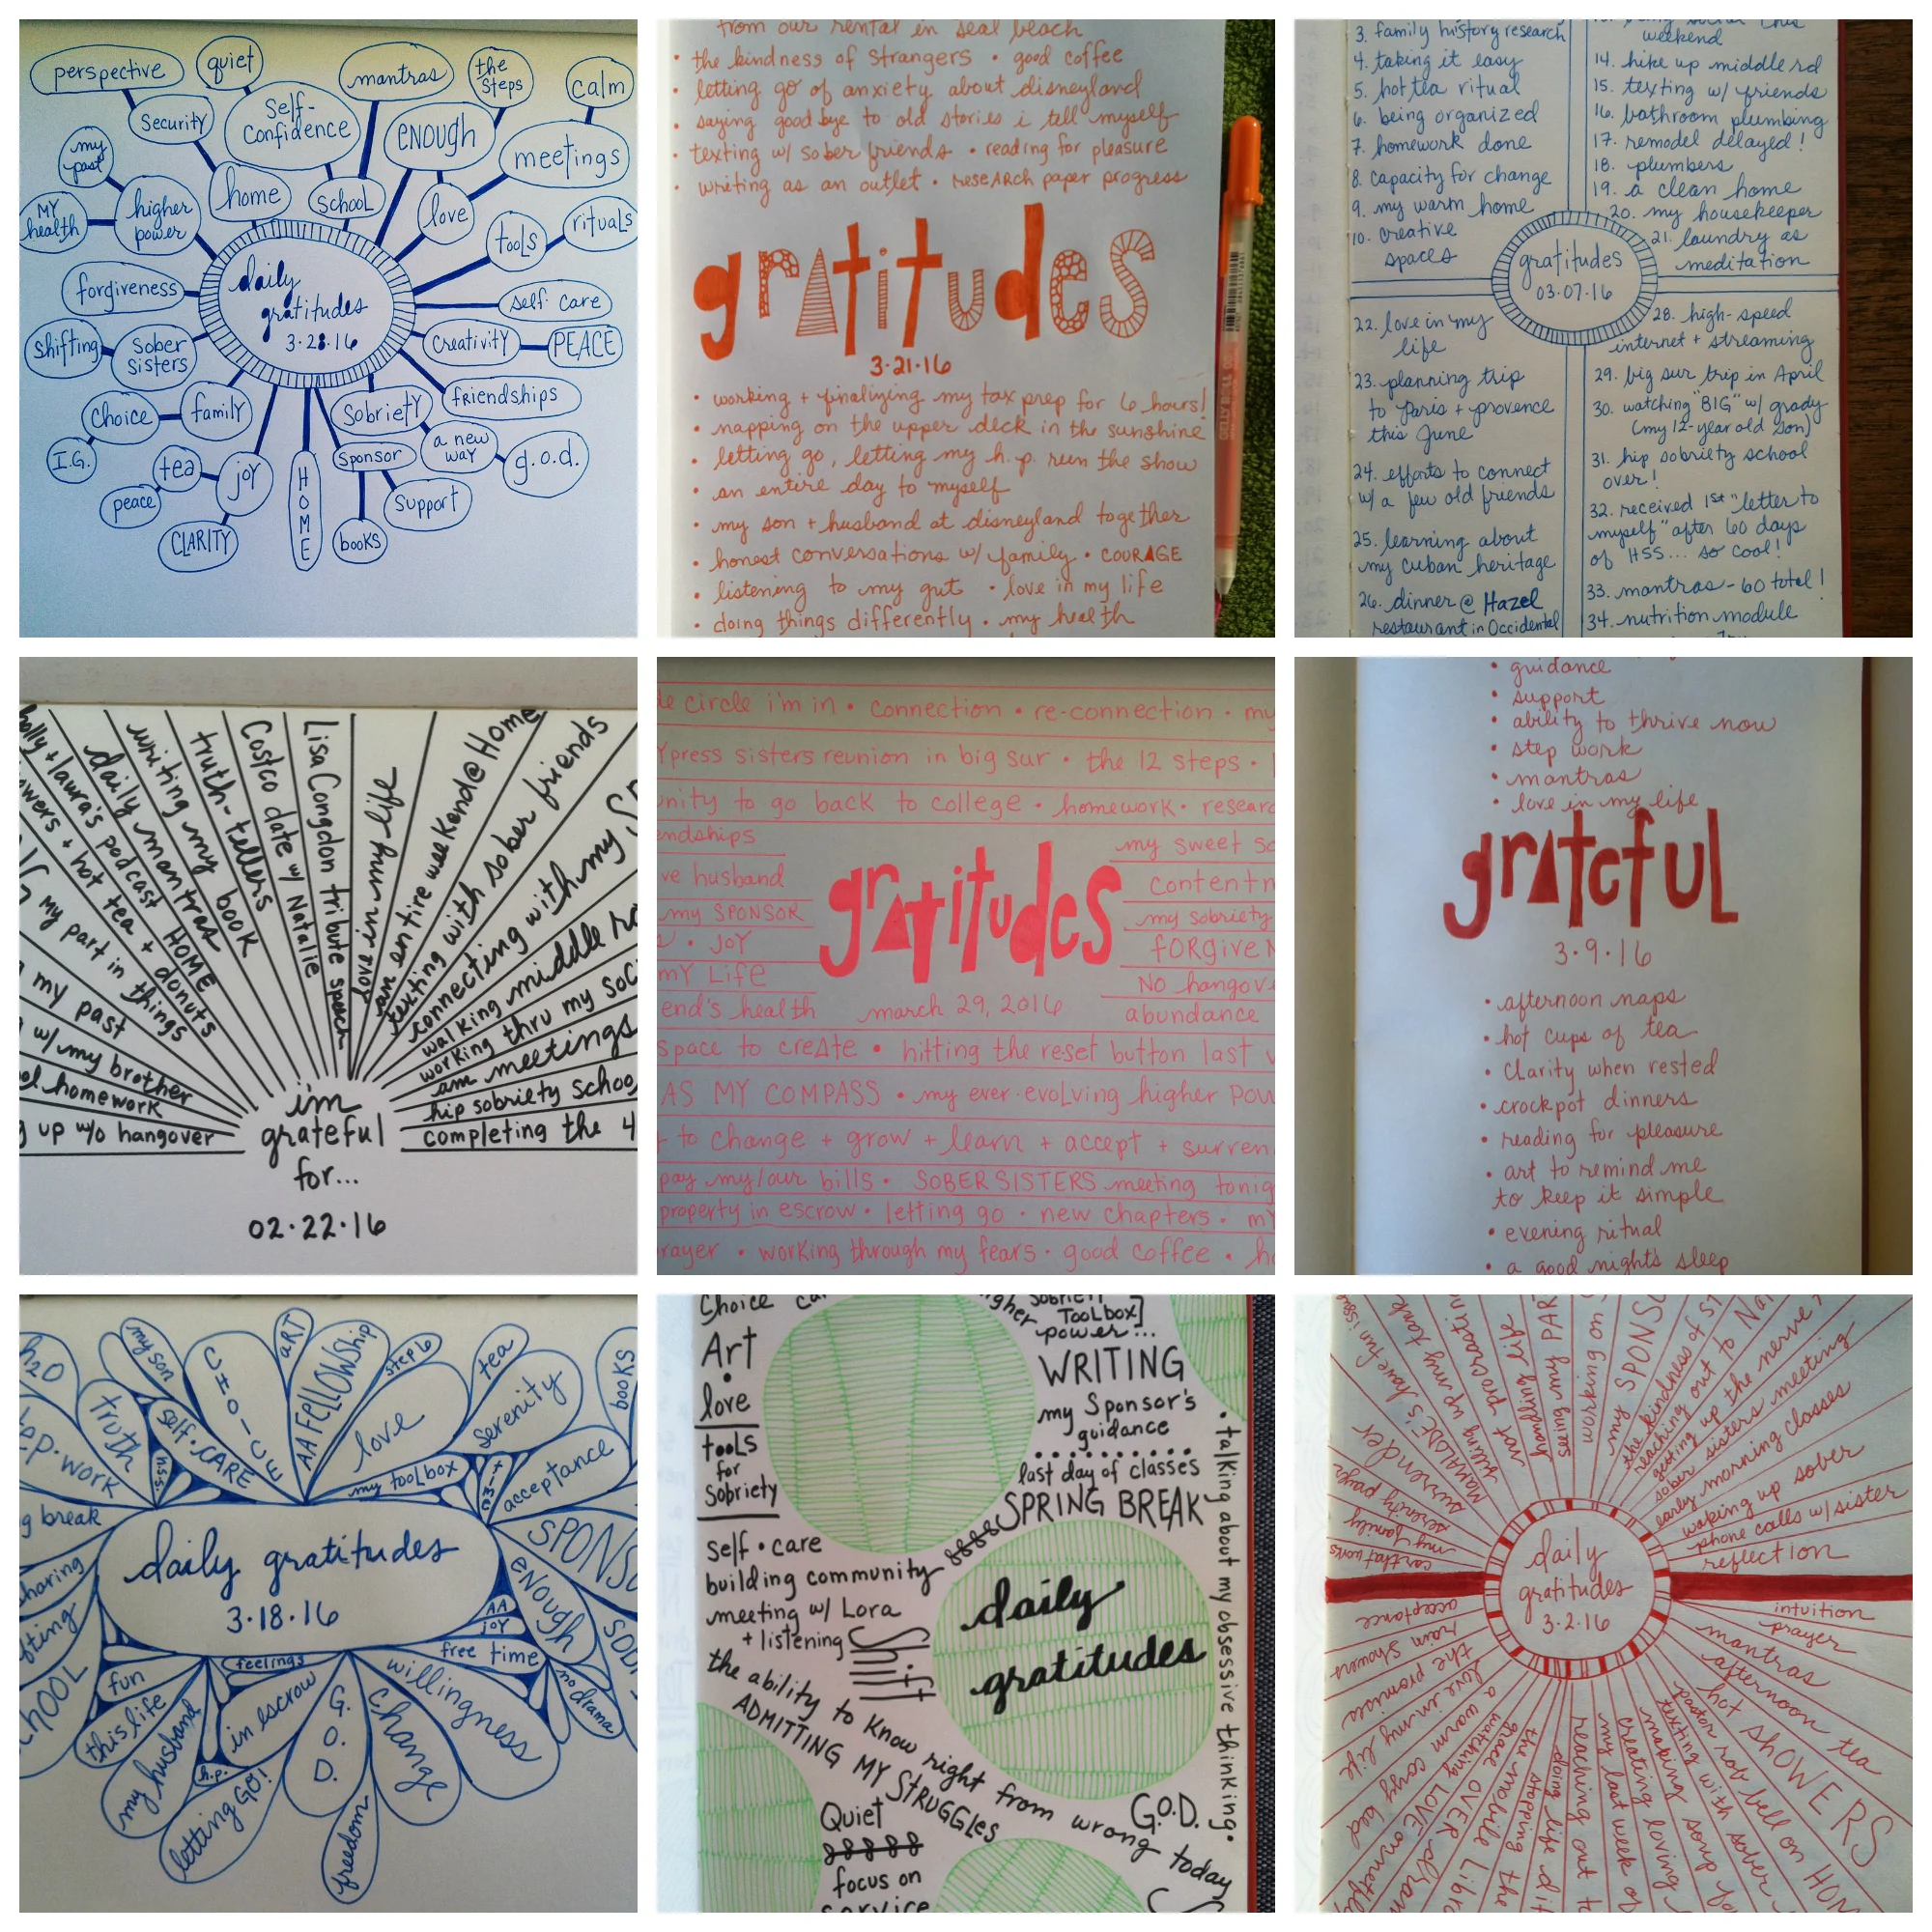 perspective
quiet
mantras
the
steps
calm
security
self-
confidence
enough
meetings
my
past
home
school
love
MY
health
higher
power
tools
rituals
forgiveness
daily
gratitudes
3·28·16
self·care
shifting
sober
sisters
creativity
PEACE
choice
family
sobriety
friendships
I.G.
tea
joy
HOME
sponsor
a new
way
g.o.d.
peace
CLARITY
books
support
from our rental in seal beach
• the kindness of strangers • good coffee
• letting go of anxiety about disneyland
• saying goodbye to old stories i tell myself
• texting w/ sober friends • reading for pleasure
• writing as an outlet • research paper progress
gratitudes
3·21·16
• working + finalizing my tax prep for 6 hours!
• napping on the upper deck in the sunshine
• letting go, letting my h.p. run the show
• an entire day to myself
• my son + husband at disneyland together
• honest conversations w/ family • COURAGE
• listening to my gut • love in my life
• doing things differently • my health
GELLY ROLL
3. family history research
4. taking it easy
5. hot tea ritual
6. being organized
7. homework done
8. capacity for change
9. my warm home
10. creative
spaces
weekend
14. hike up middle rd
15. texting w/ friends
16. bathroom plumbing
17. remodel delayed!
18. plumbers
19. a clean home
20. my housekeeper
21. laundry as
meditation
gratitudes
03·07·16
22. love in my
life
23. planning trip
to Paris + provence
this June
24. efforts to connect
w/ a few old friends
25. learning about
my cuban heritage
26. dinner @ Hazel
restaurant in Occidental
28. high-speed
internet + streaming
29. big sur trip in April
30. watching "BIG" w/ grady
(my 12-year old son)
31. hip sobriety school
over!
32. received 1st "letter to
myself" after 60 days
of HSS... so cool!
33. mantras - 60 total!
34. nutrition module
up w/o hangover
homework
w/ my brother
my past
my part in things
+ hot tea + donuts
holly + laura's podcast HOME
daily mantras
writing my book
truth-tellers
Costco date w/ Natalie
Lisa Congdon tribute speech
love in my life
an entire weekend @ Home
texting with sober friends
connecting with my
walking middle
working thru my
am meetings
hip sobriety
completing the 4
i'm
grateful
for...
02·22·16
circle i'm in • connection • re-connection • my
sisters reunion in big sur • the 12 steps •
to go back to college • homework •
my sweet
husband
my SPONSOR
my sobriety
• JOY
MY Life
No
end's health
abundance
gratitudes
march 29, 2016
space to create • hitting the reset button last
AS MY COMPASS • my ever-evolving higher
to change + grow + learn + accept +
pay my/our bills • SOBER SISTERS meeting
property in escrow • letting go • new chapters •
• working through my fears • good coffee •
• guidance
• support
• ability to thrive now
• step work
• mantras
• love in my life
grateful
3·9·16
• afternoon naps
• hot cups of tea
• clarity when rested
• crockpot dinners
• reading for pleasure
• art to remind me
to keep it simple
• evening ritual
• a good night's sleep
h2O
my son
CHOICE
ART
AA FELLOWSHIP
step 6
tea
books
truth
self·CARE
love
serenity
work
h.s.s.
my toolbox
time
acceptance
break
daily gratitudes
3·18·16
enough
AA
joy
fun
feelings
free time
this life
my husband
h.p.
in escrow
G.O.D.
change
willingness
no drama
letting GO!
freedom
Choice
Art
love
tools
for
sobriety
TOOLBOX]
higher power...
WRITING
my Sponsor's
guidance
last day of classes
SPRING BREAK
self·care
building community
meeting w/ Lora
+ listening
shift
daily
gratitudes
• talking about my obsessive thinking.
the ability to know right from wrong today
ADMITTING MY STRUGGLES
G.O.D.
Quiet
focus on
service
surrender
serenity prayer
my family
car that works
working on
my SPONSOR
the kindness of
reaching out to
getting up the nerve
sober sisters meeting
early morning classes
waking up sober
phone calls w/ sister
reflection
daily
gratitudes
3·2·16
intuition
prayer
mantras
afternoon tea
hot SHOWERS
pastor rob bell on
texting with sober
making soup
creating loving
my last week of
reaching out
doing life
stopping the
the mobile
grace OVER
watching LOVE on
a warm cozy bed
love in my life
the promises
rain showers
acceptance